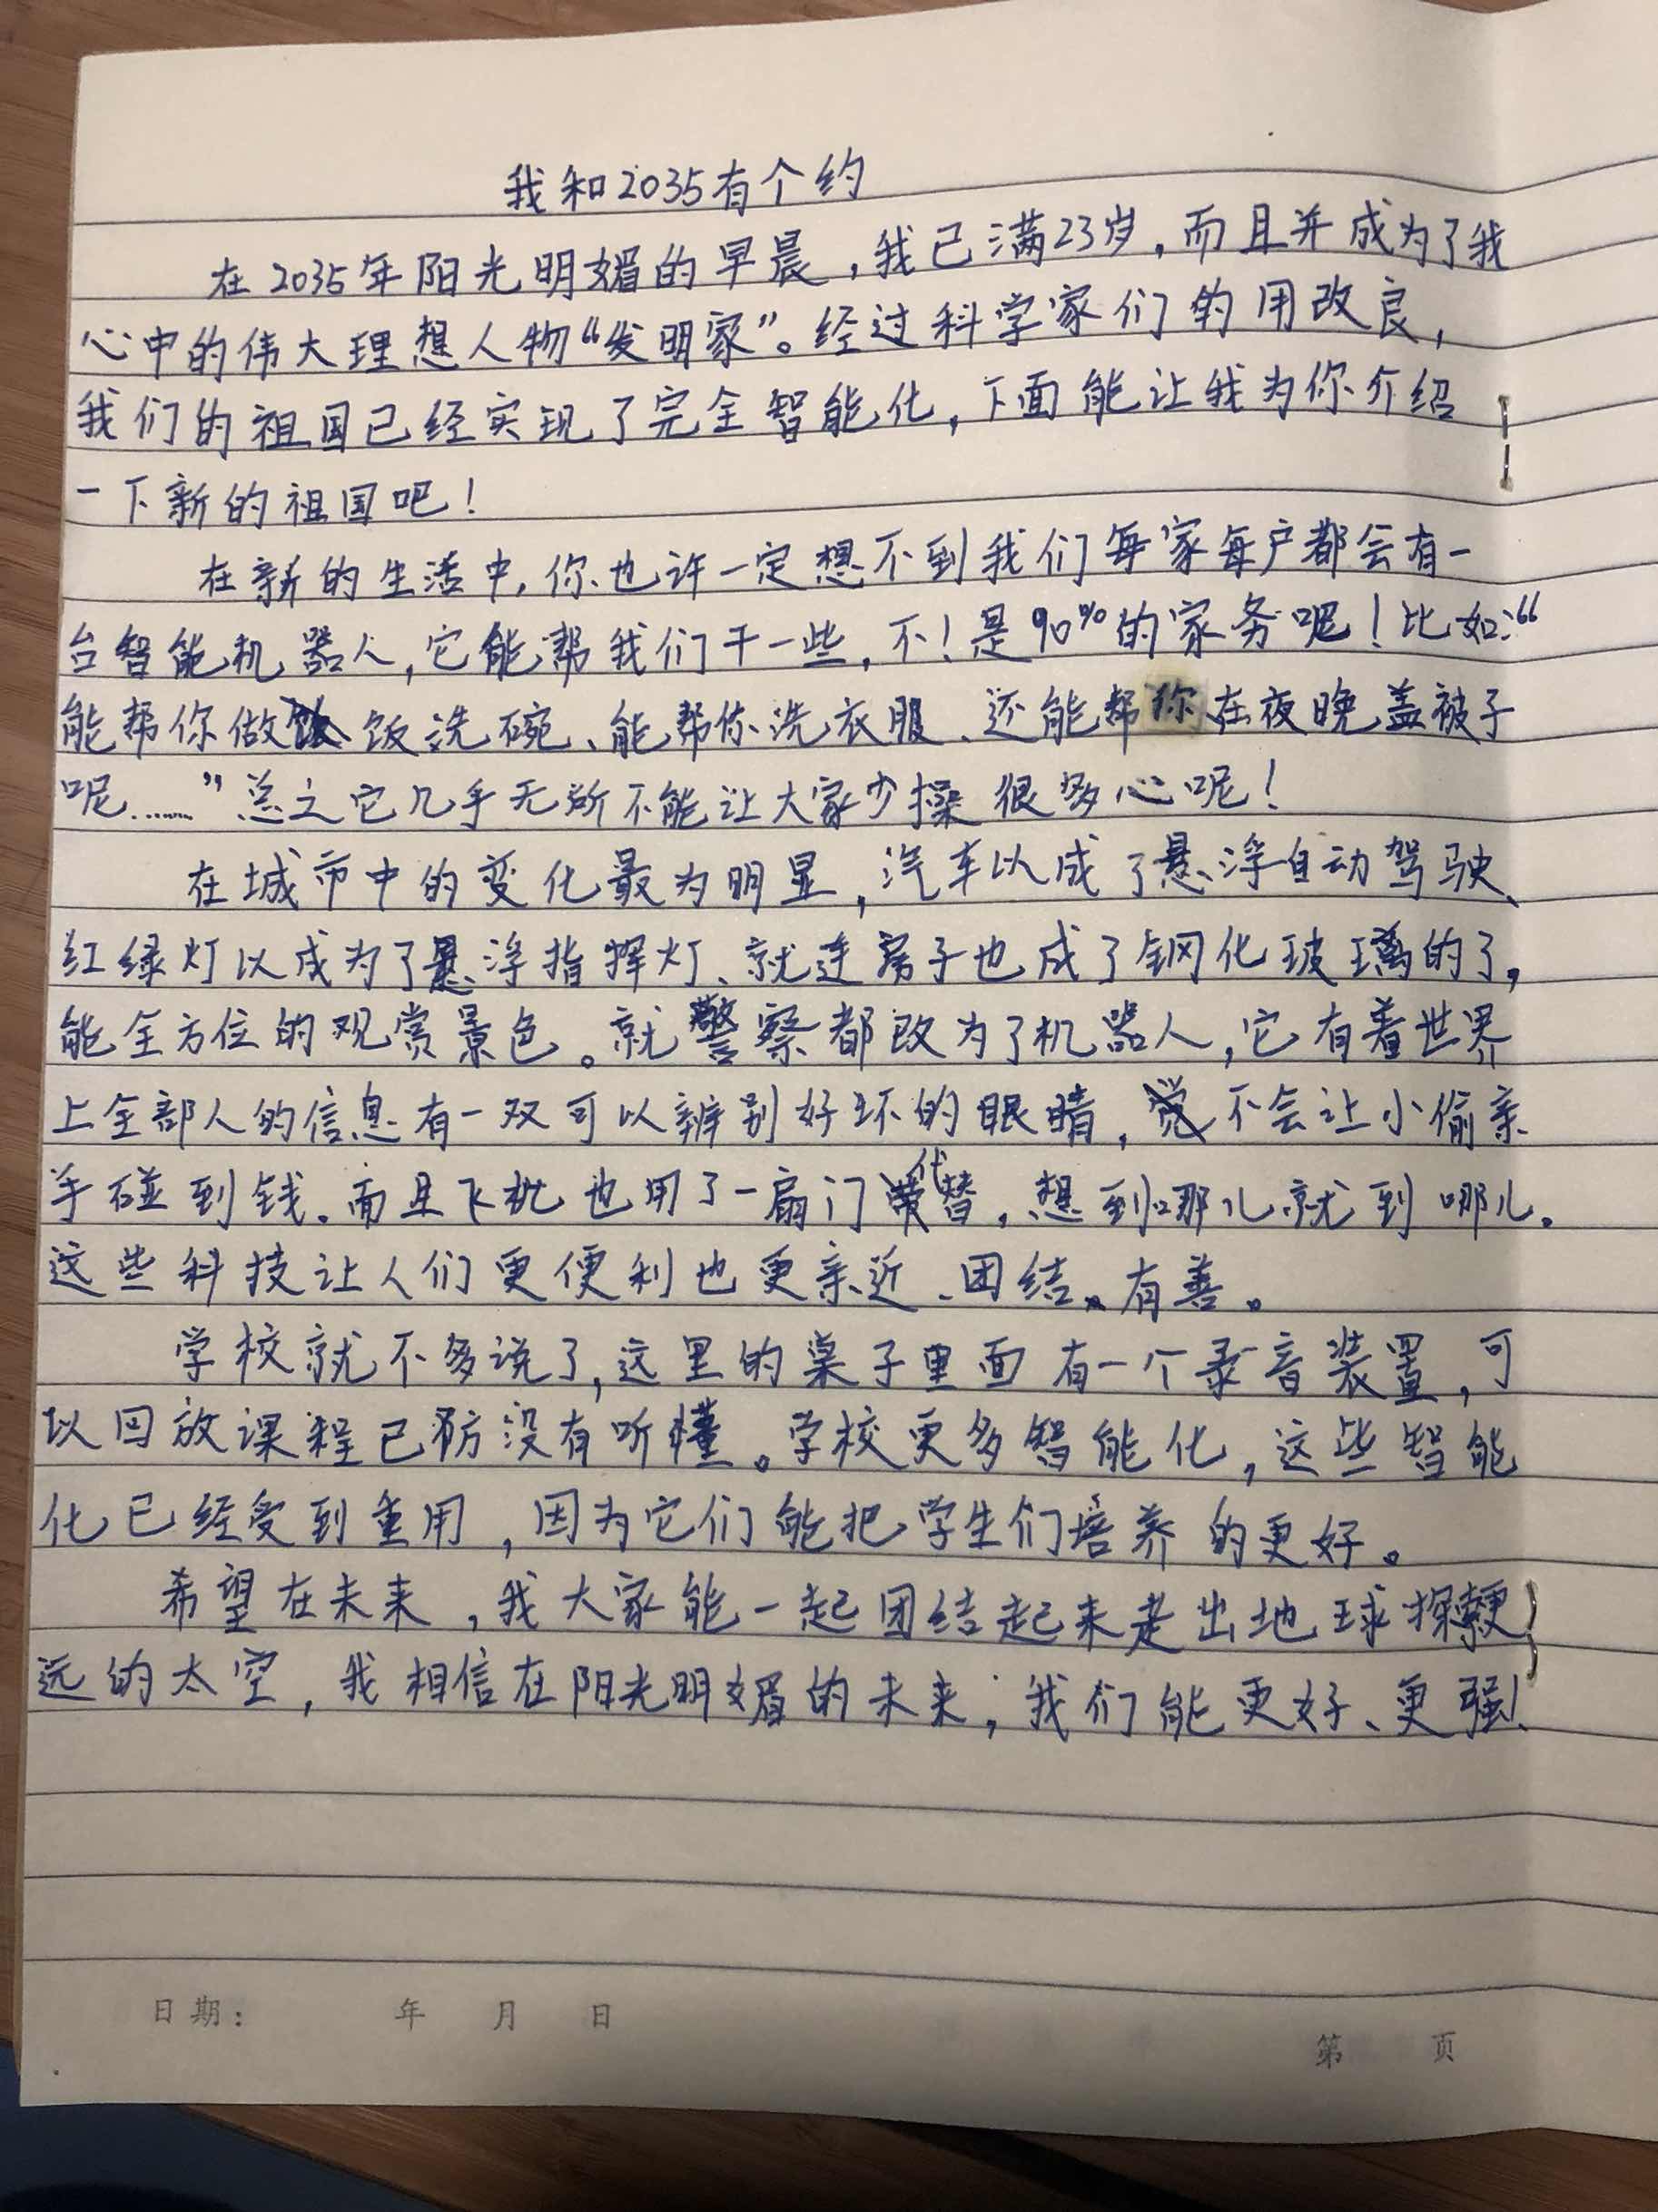 我和2035有个约
在2035年阳光明媚的早晨，我已满23岁，而且并成为了我
心中的伟大理想人物“发明家”。经过科学家们的用改良，
我们的祖国已经实现了完全智能化，下面能让我为你介绍
一下新的祖国吧！
在新的生活中，你也许一定想不到我们每家每户都会有一
台智能机器人，它能帮我们干一些，不！是90%的家务呢！比如：“
能帮你做饭洗碗、能帮你洗衣服、还能帮你在夜晚盖被子
呢……”总之它几乎无所不能让大家少操很多心呢！
在城市中的变化最为明显，汽车以成了悬浮自动驾驶、
红绿灯以成为了悬浮指挥灯、就连房子也成了钢化玻璃的了，
能全方位的观赏景色。就警察都改为了机器人，它有着世界
上全部人的信息有一双可以辨别好坏的眼睛，不会让小偷亲
手碰到钱。而且飞机也用了一扇门代替，想到哪儿就到哪儿。
这些科技让人们更便利也更亲近、团结。有善。
学校就不多说了，这里的桌子里面有一个录音装置，可
以回放课程已防没有听懂。学校更多智能化，这些智能
化已经受到重用，因为它们能把学生们培养的更好。
希望在未来，我大家能一起团结起来走出地球探索更
远的太空，我相信在阳光明媚的未来，我们能更好、更强！
日期： 年 月 日
第 页